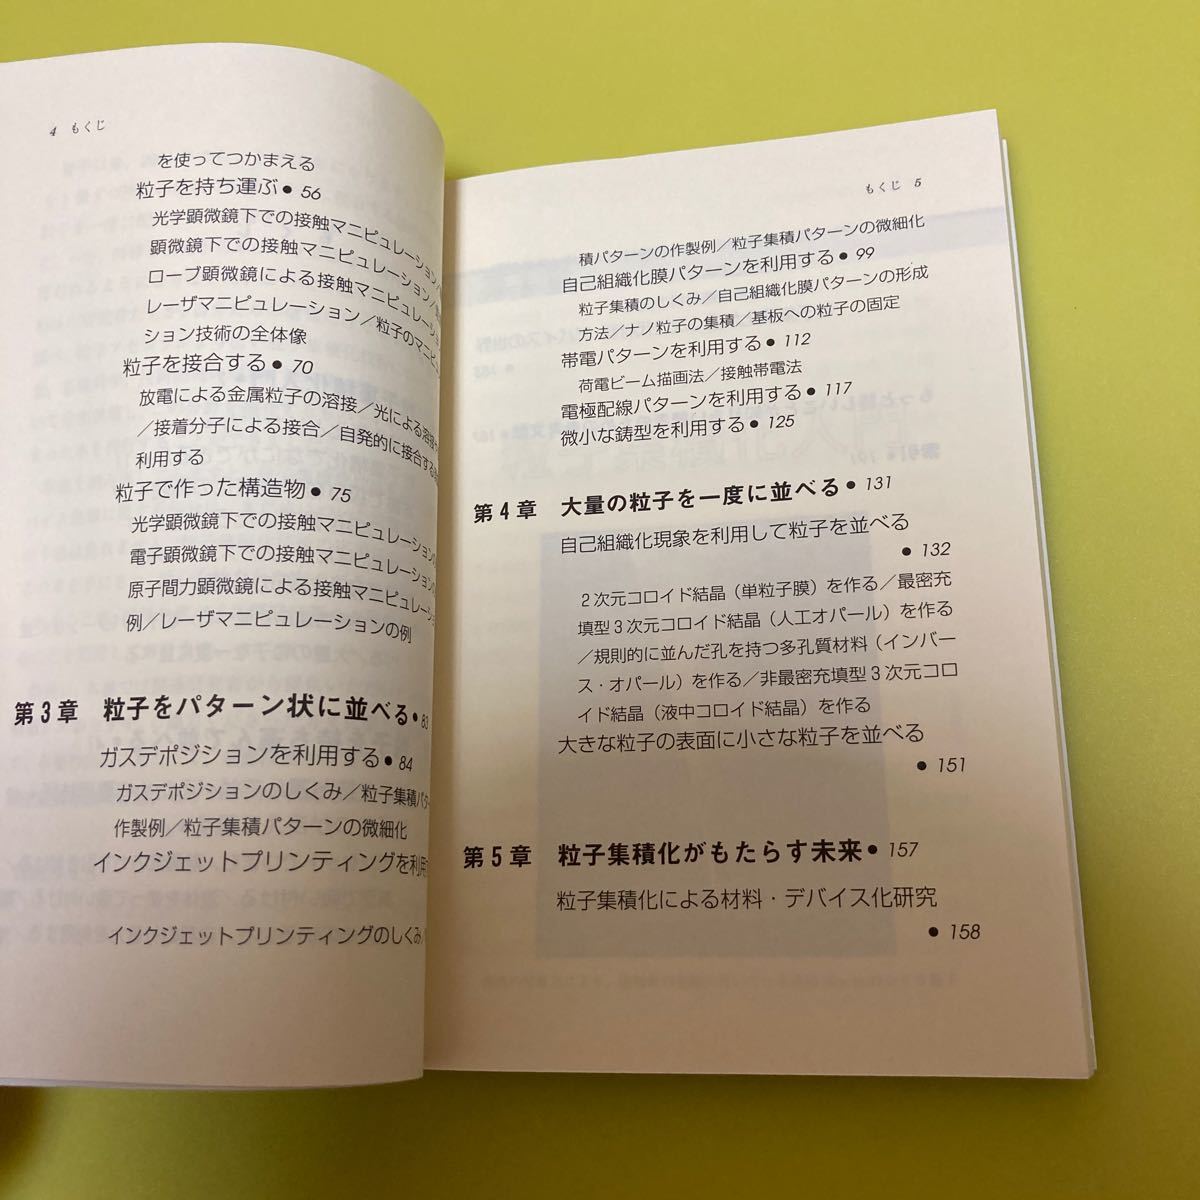 4 もくじ
を使ってつかまえる
粒子を持ち運ぶ● 56
光学顕微鏡下での接触マニピュレーション
顕微鏡下での接触マニピュレーション/
ローブ顕微鏡による接触マニピュレーション
レーザマニピュレーション/粒子のマニピュ
ション技術の全体像
粒子を接合する● 70
放電による金属粒子の溶接/光による溶接
/接着分子による接合/自発的に接合する
利用する
粒子で作った構造物● 75
光学顕微鏡下での接触マニピュレーションの
電子顕微鏡下での接触マニピュレーションの
原子間力顕微鏡による接触マニピュレーション
例/レーザマニピュレーションの例
第3章 粒子をパターン状に並べる● 83
ガスデポジションを利用する● 84
ガスデポジションのしくみ/粒子集積パター
作製例/粒子集積パターンの微細化
インクジェットプリンティングを利用
インクジェットプリンティングのしくみ/
もくじ 5
積パターンの作製例/粒子集積パターンの微細化
自己組織化膜パターンを利用する● 99
粒子集積のしくみ/自己組織化膜パターンの形成
方法/ナノ粒子の集積/基板への粒子の固定
帯電パターンを利用する● 112
荷電ビーム描画法/接触帯電法
電極配線パターンを利用する● 117
微小な鋳型を利用する● 125
第4章 大量の粒子を一度に並べる● 131
自己組織化現象を利用して粒子を並べる
● 132
2次元コロイド結晶(単粒子膜)を作る/最密充
填型3次元コロイド結晶(人工オパール)を作る
/規則的に並んだ孔を持つ多孔質材料(インバー
ス・オパール)を作る/非最密充填型3次元コロ
イド結晶(液中コロイド結晶)を作る
大きな粒子の表面に小さな粒子を並べる
● 151
第5章 粒子集積化がもたらす未来● 157
粒子集積化による材料・デバイス化研究
● 158